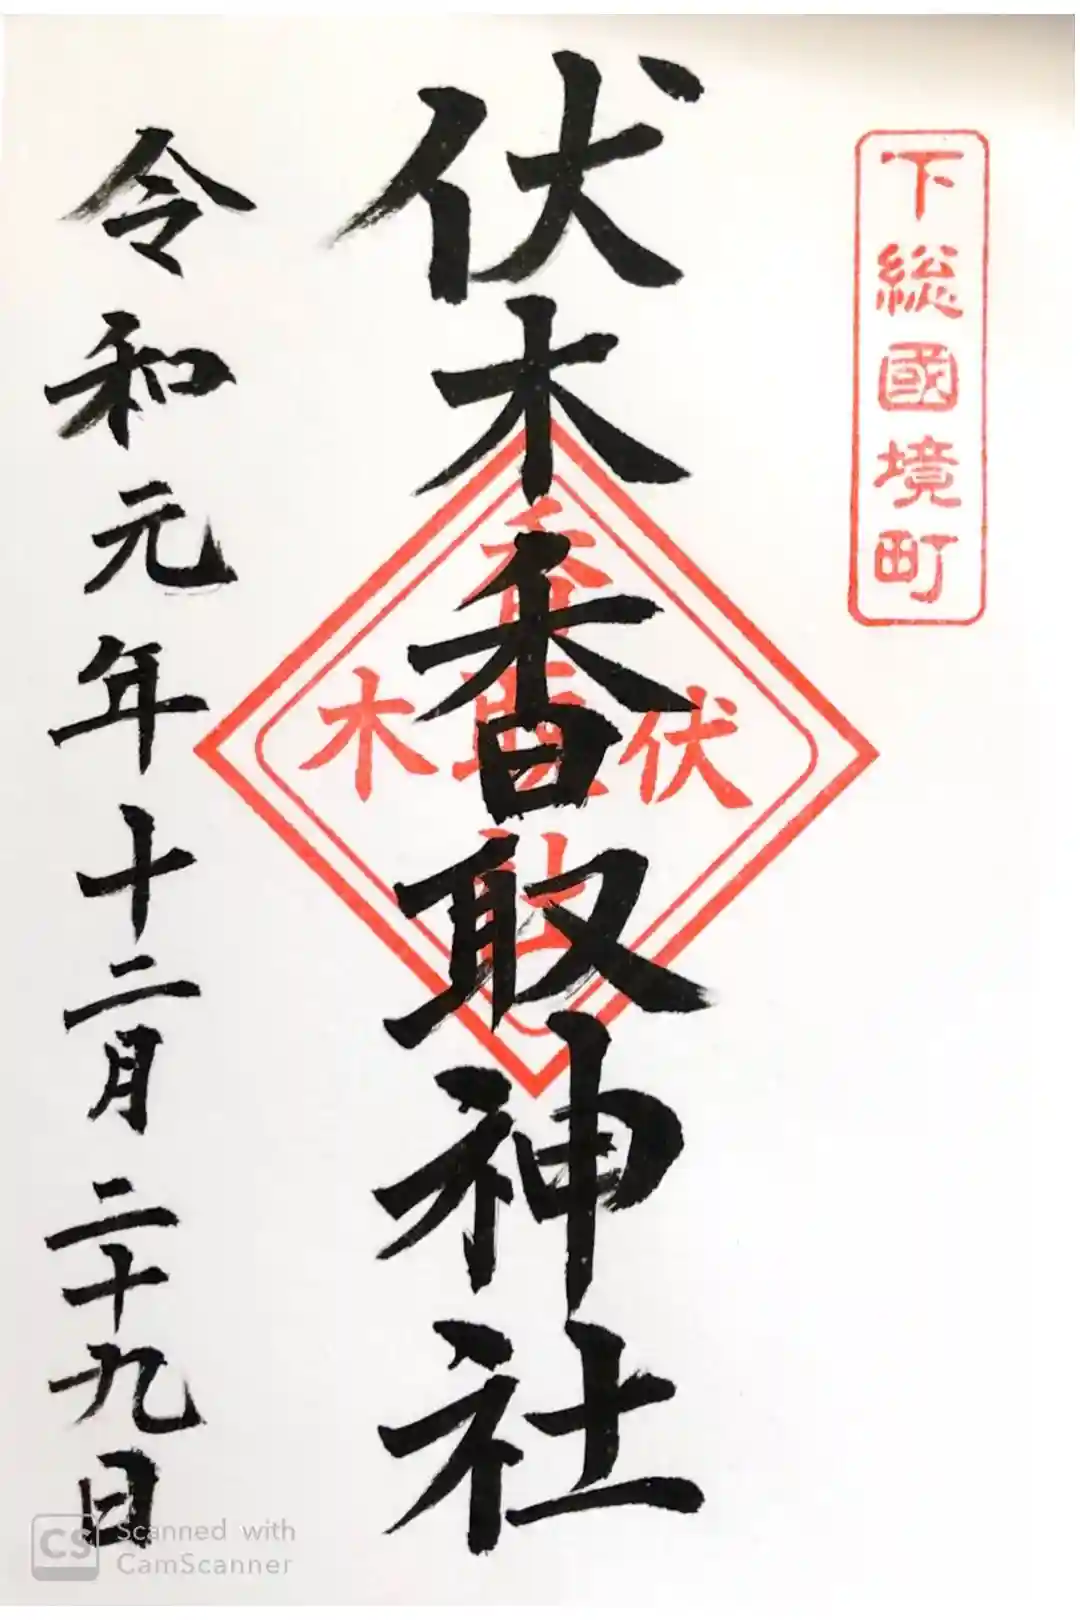 下総國境町
伏木香取神社
香取社
伏木
令和元年十二月二十九日
CS Scanned with
CamScanner